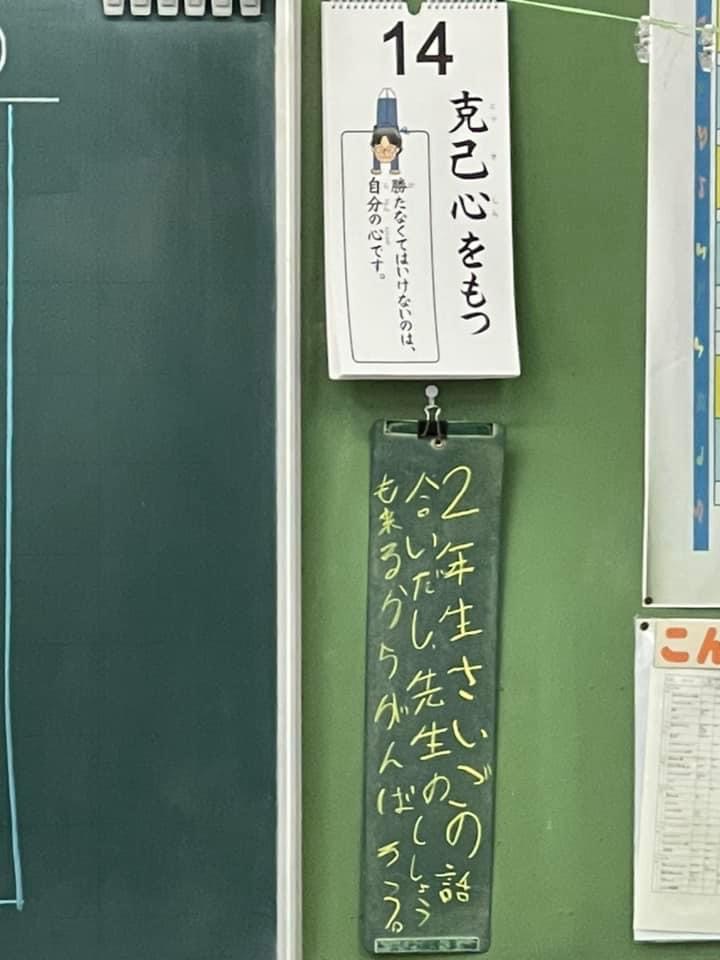 14
克己心をもつ
勝たなくてはいけないのは、
自分の心です。
2年生さいごの話
合いだし、先生のししょう
も来るからがんばろう。
こん